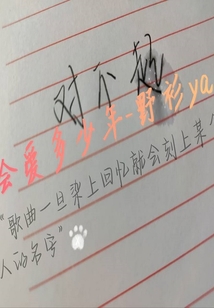 对不起
会爱多少年-野衫ya
"歌曲一旦染上回忆就会刻上某个
人的名字"